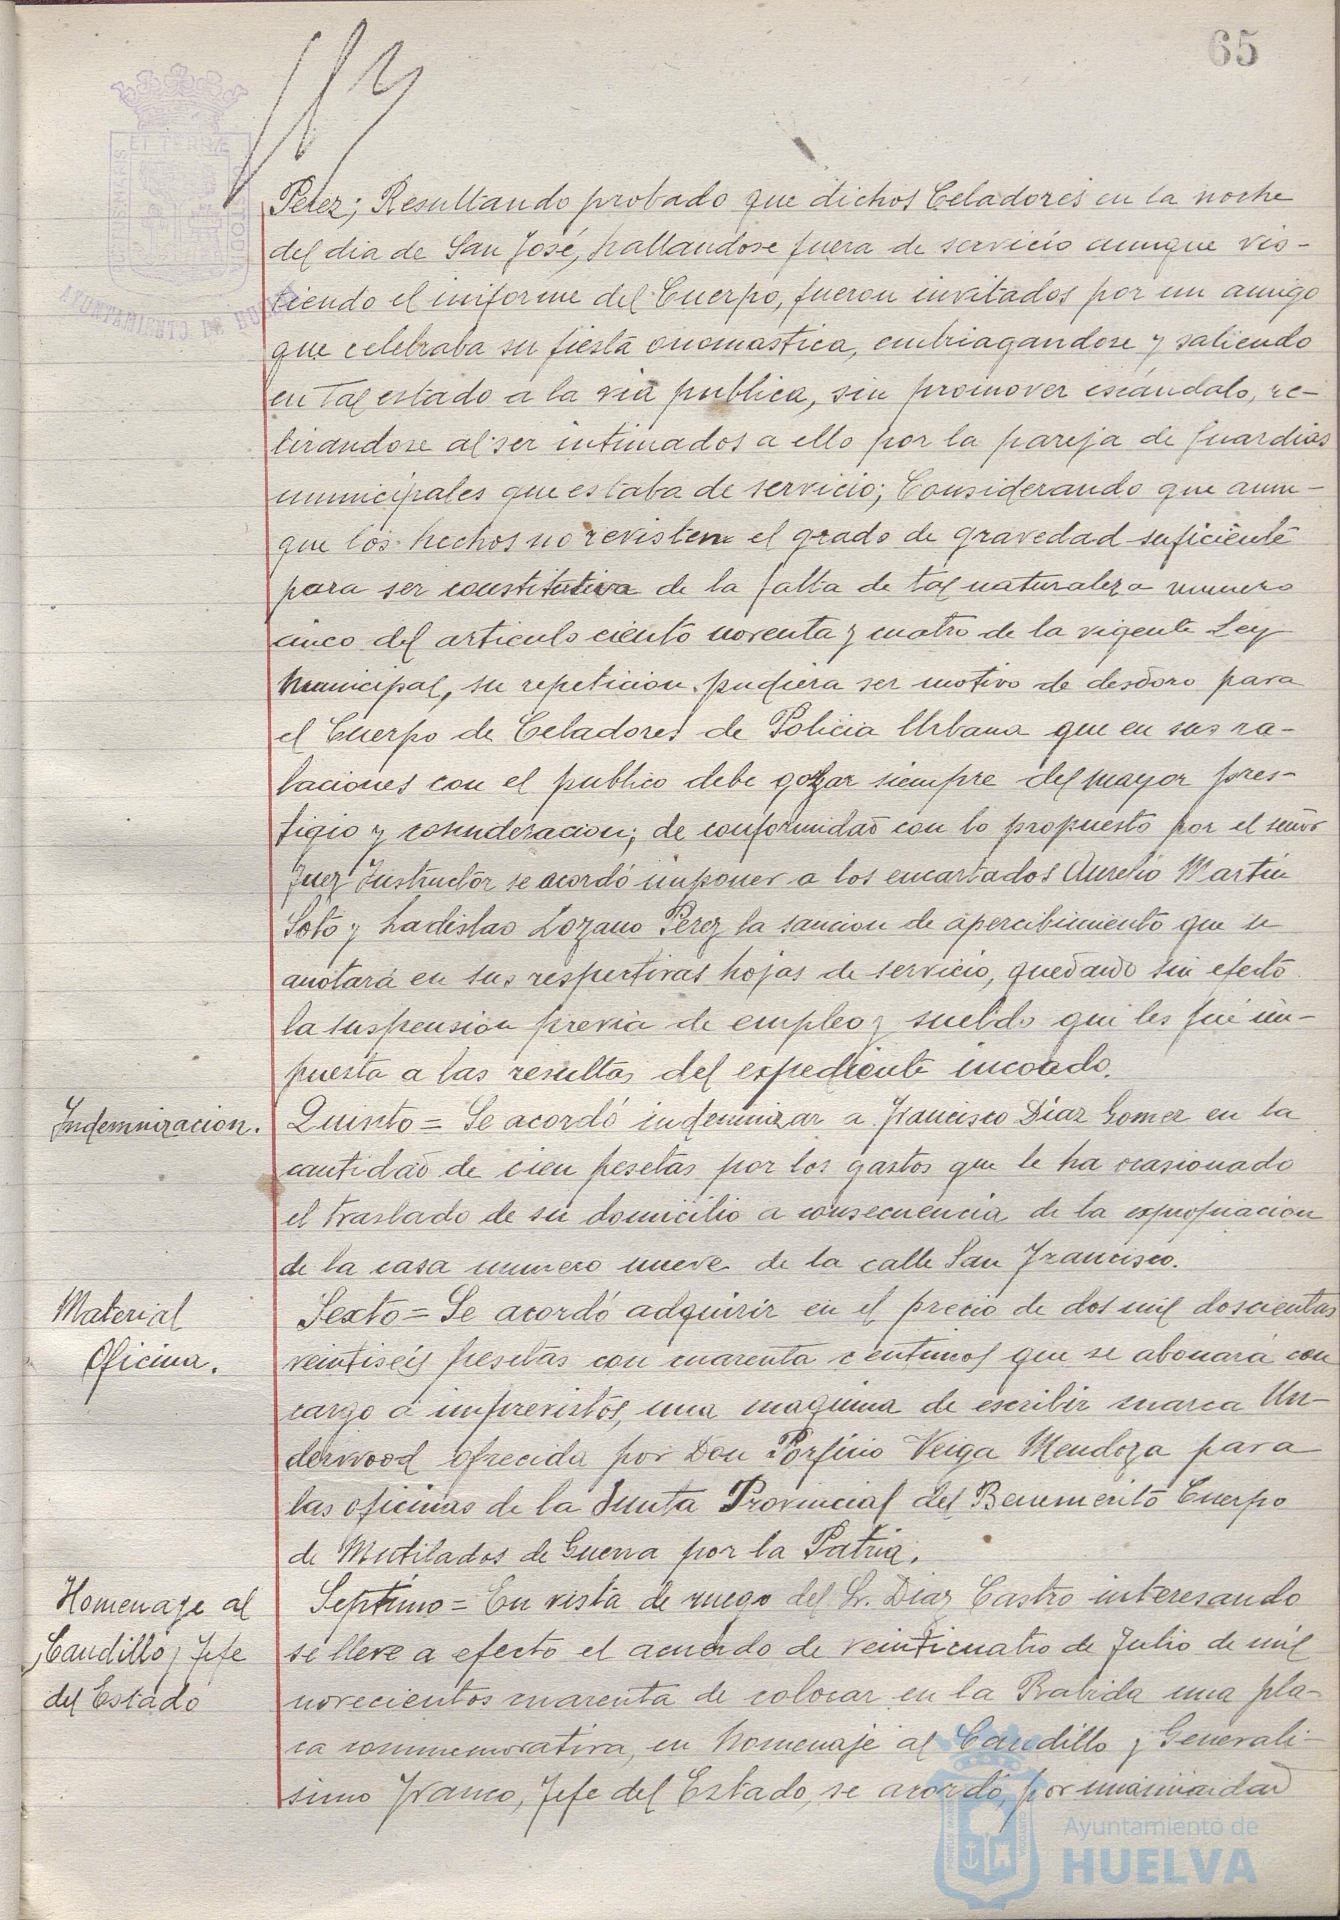 65
PORTUS MARIS ET TERRÆ CUSTODIA
AYUNTAMIENTO DE HUELVA
Perez; Resultando probado que dichos Celadores en la noche
del dia de San José, hallandose fuera de servicio aunque vis-
tiendo el uniforme del Cuerpo, fueron invitados por un amigo
que celebraba su fiesta onomastica, embriagandose y saliendo
en tal estado a la via publica, sin promover escándalo, re-
tirandose al ser intimados a ello por la pareja de Guardias
municipales que estaba de servicio; Considerando que aun-
que los hechos no revisten el grado de gravedad suficiente
para ser constitutiva de la falta de tal naturaleza numero
cinco del articulo ciento noventa y cuatro de la vigente Ley
Municipal, su repeticion pudiera ser motivo de desdoro para
el Cuerpo de Celadores de Policia Urbana que en sus re-
laciones con el publico debe gozar siempre del mayor pres-
tigio y consideracion; de conformidad con lo propuesto por el señor
Juez Instructor se acordó imponer a los encartados Aurelio Martin
Soto y Ladislao Lozano Perez la sancion de apercibimiento que se
anotará en sus respectivas hojas de servicio, quedando sin efecto
la suspension previa de empleo y sueldo que les fué im-
puesta a las resultas del expediente incoado.
Indemnizacion.
Quinto = Se acordó indemnizar a Francisco Diaz Gomez en la
cantidad de cien pesetas por los gastos que le ha ocasionado
el traslado de su domicilio a consecuencia de la expropiacion
de la casa numero nueve de la calle San Francisco.
Material
Oficina.
Sexto = Se acordó adquirir en el precio de dos mil doscientas
veintiseis pesetas con cuarenta centimos que se abonará con
cargo a imprevistos, una maquina de escribir marca Un-
derwood ofrecida por Don Porfirio Veiga Mendoza para
las oficinas de la Junta Provincial del Benemerito Cuerpo
de Mutilados de Guerra por la Patria.
Homenaje al
Caudillo y Jefe
del Estado
Septimo = En vista de ruego del Sr. Diaz Castro interesando
se lleve a efecto el acuerdo de veinticuatro de Julio de mil
novecientos cuarenta de colocar en la Rabida una pla-
ca conmemorativa, en homenaje al Caudillo y Generali-
simo Franco, Jefe del Estado, se acordó, por unanimidad
Ayuntamiento de
HUELVA